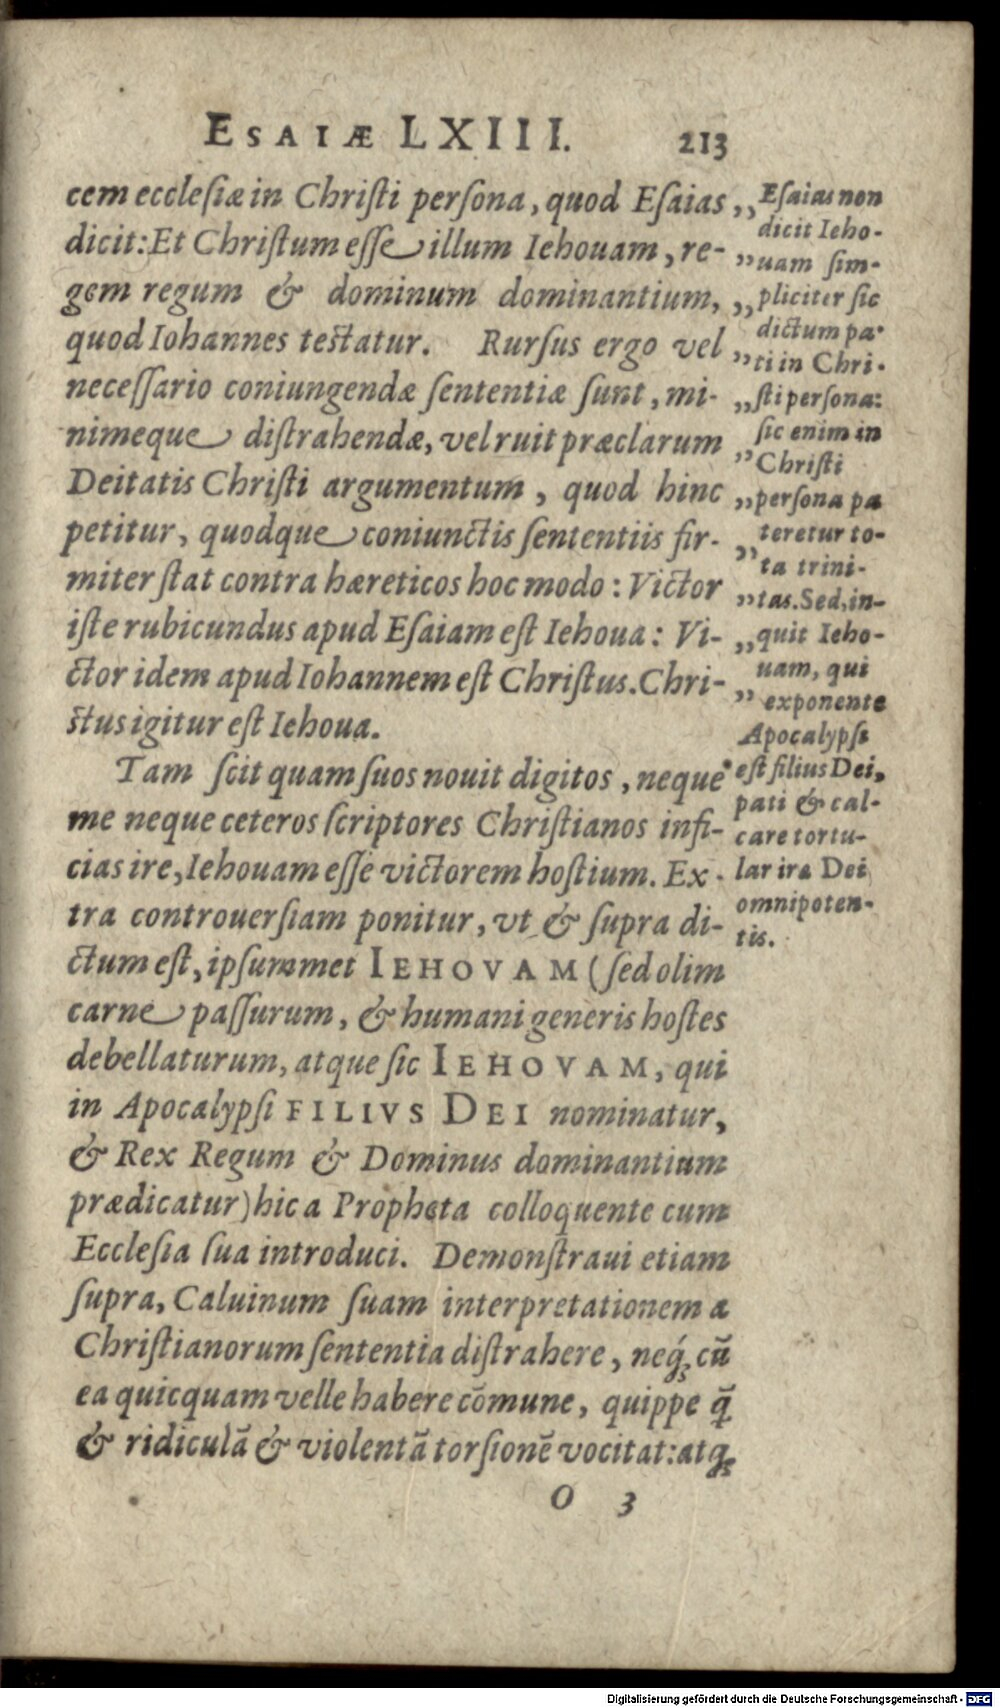 ESAIÆ LXIII. 213
cem ecclesiæ in Christi persona, quod Esaias
dicit: Et Christum esse illum Iehouam, re-
gem regum & dominum dominantium,
quod Iohannes testatur. Rursus ergo vel
necessario coniungendæ sententiæ sunt, mi-
nimeque distrahendæ, vel ruit præclarum
Deitatis Christi argumentum, quod hinc
petitur, quodque coniunctis sententiis fir-
miter stat contra hæreticos hoc modo: Victor
iste rubicundus apud Esaiam est Iehoua: Vi-
ctor idem apud Iohannem est Christus. Chri-
stus igitur est Iehoua.
Tam scit quam suos nouit digitos, neque
me neque ceteros scriptores Christianos infi-
cias ire, Iehouam esse victorem hostium. Ex-
tra controuersiam ponitur, vt & supra di-
ctum est, ipsummet IEHOVAM (sed olim
carne passurum, & humani generis hostes
debellaturum, atque sic IEHOVAM, qui
in Apocalypsi FILIVS DEI nominatur,
& Rex Regum & Dominus dominantium
prædicatur) hic a Propheta colloquente cum
Ecclesia sua introduci. Demonstraui etiam
supra, Caluinum suam interpretationem a
Christianorum sententia distrahere, neq́ꝫ cū
ea quicquam velle habere cōmune, quippe q̄
& ridiculā & violentā torsionē vocitat: atqꝫ
O 3
,, Esaias non
dicit Ieho-
,, uam sim-
,, pliciter sic
dictum pa-
,, ti in Chri-
,, sti persona:
sic enim in
,, Christi
,, persona pa
,, teretur to-
ta trini-
,, tas. Sed, in-
,, quit Ieho-
uam, qui
,, exponente
Apocalypsi
est filius Dei,
pati & cal-
care torcu-
lar iræ Dei
omnipoten-
tis.
Digitalisierung gefördert durch die Deutsche Forschungsgemeinschaft - DFG